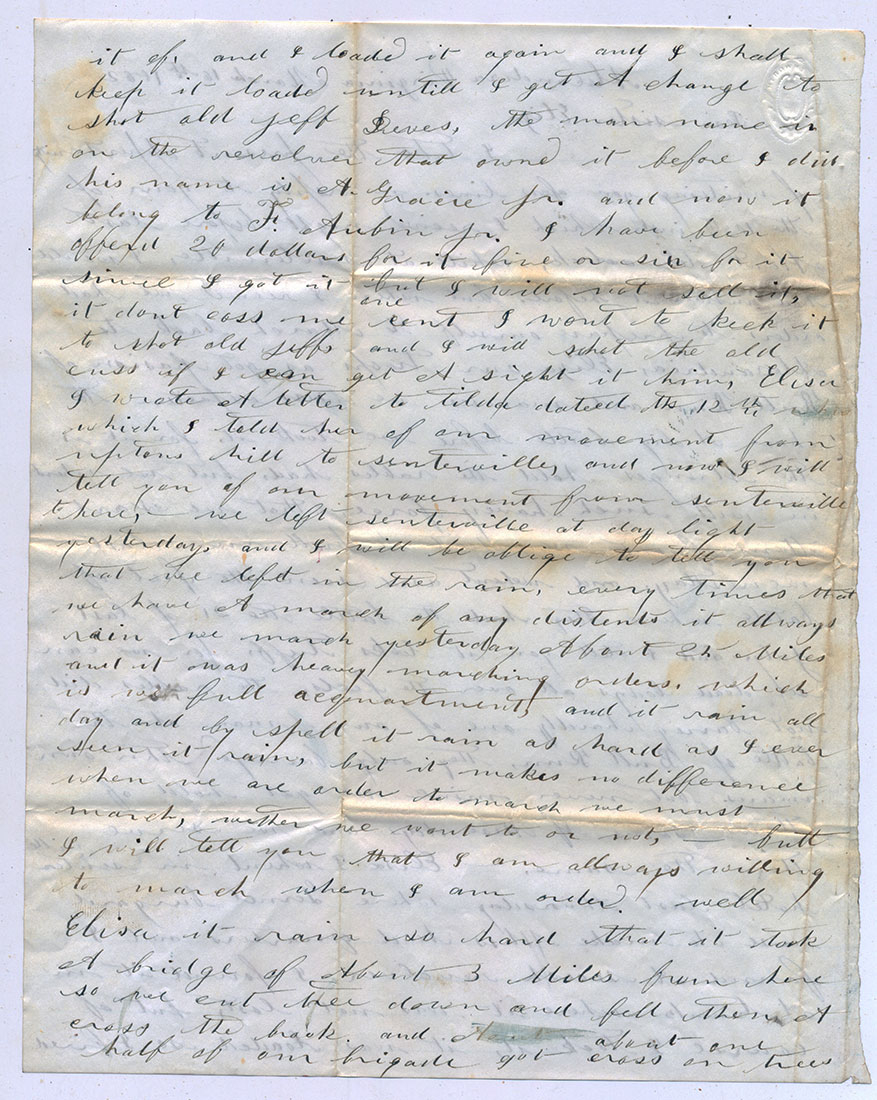 it of, and I loade it again and I shall
keep it loade untill I get A change to
shot old Jeff Deves, the man name is
on the revolver that owned it before I did
his name is A. Gracie Jr. and now it
belong to F. Aubin Jr. I have been
offerd 20 dollars for it five or six for it
since I got it but I will not sell it,
it dont coss me one cent I wont to keek it
to shot old Jeffs and I will shot the old
cuss if I can get A sight it him, Elisa
I wrote A letter to tilda dateed the 12th in
which I told her of our movement from
uptons hill to senterville, and now I will
tell you of our movement from senterville
to here, — we left senterville at day light
yesterday, and I will be oblige to tell you
that we left in the rain, every times that
we have A march of any distents it allways
rain we march yesterday About 24 Miles
and it was heavy marching orders. which
is full acquartment, and it rain all
day and by spell it rain as hard as I ever
seen it rain, but it makes no difference
when we are order to march we must
march, wether we want to or not, — butt
I will tell you that I am allways willing
to march when I am order. well
Elisa it rain so hard that it took
A bridge of About 3 Miles from here
so we cut tree down and fell them A
cross the brook. and about one
half of our brigade got cross on trees